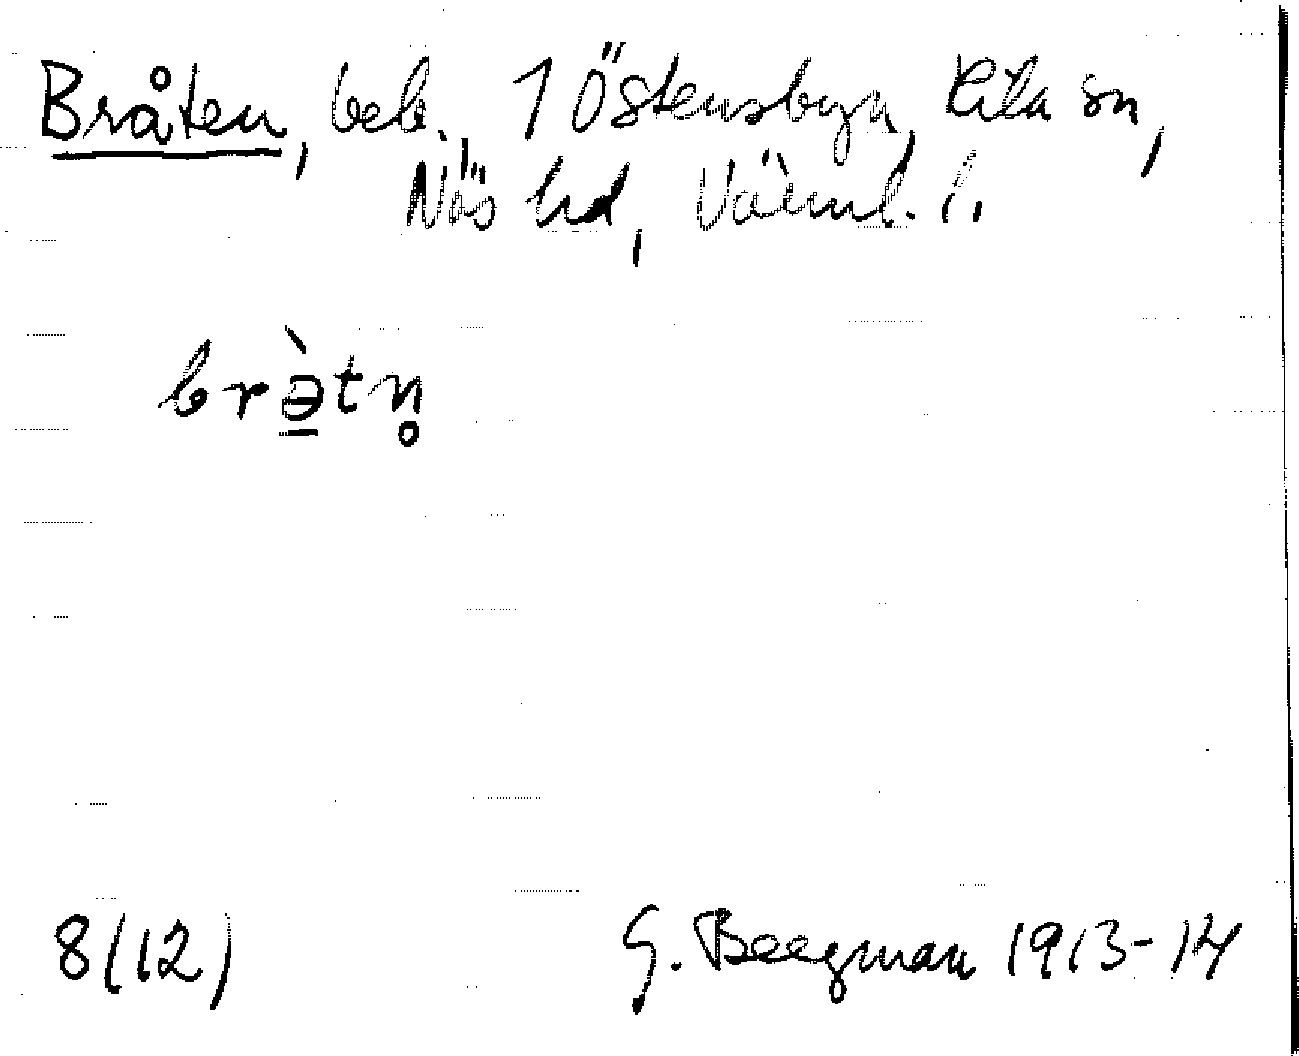 Bråten, beb., 1 Östensbyn, Kila sn,
Näs hd, Värml. l.
brə̠̀tn̥
8(12)
G. Beegman 1913-14